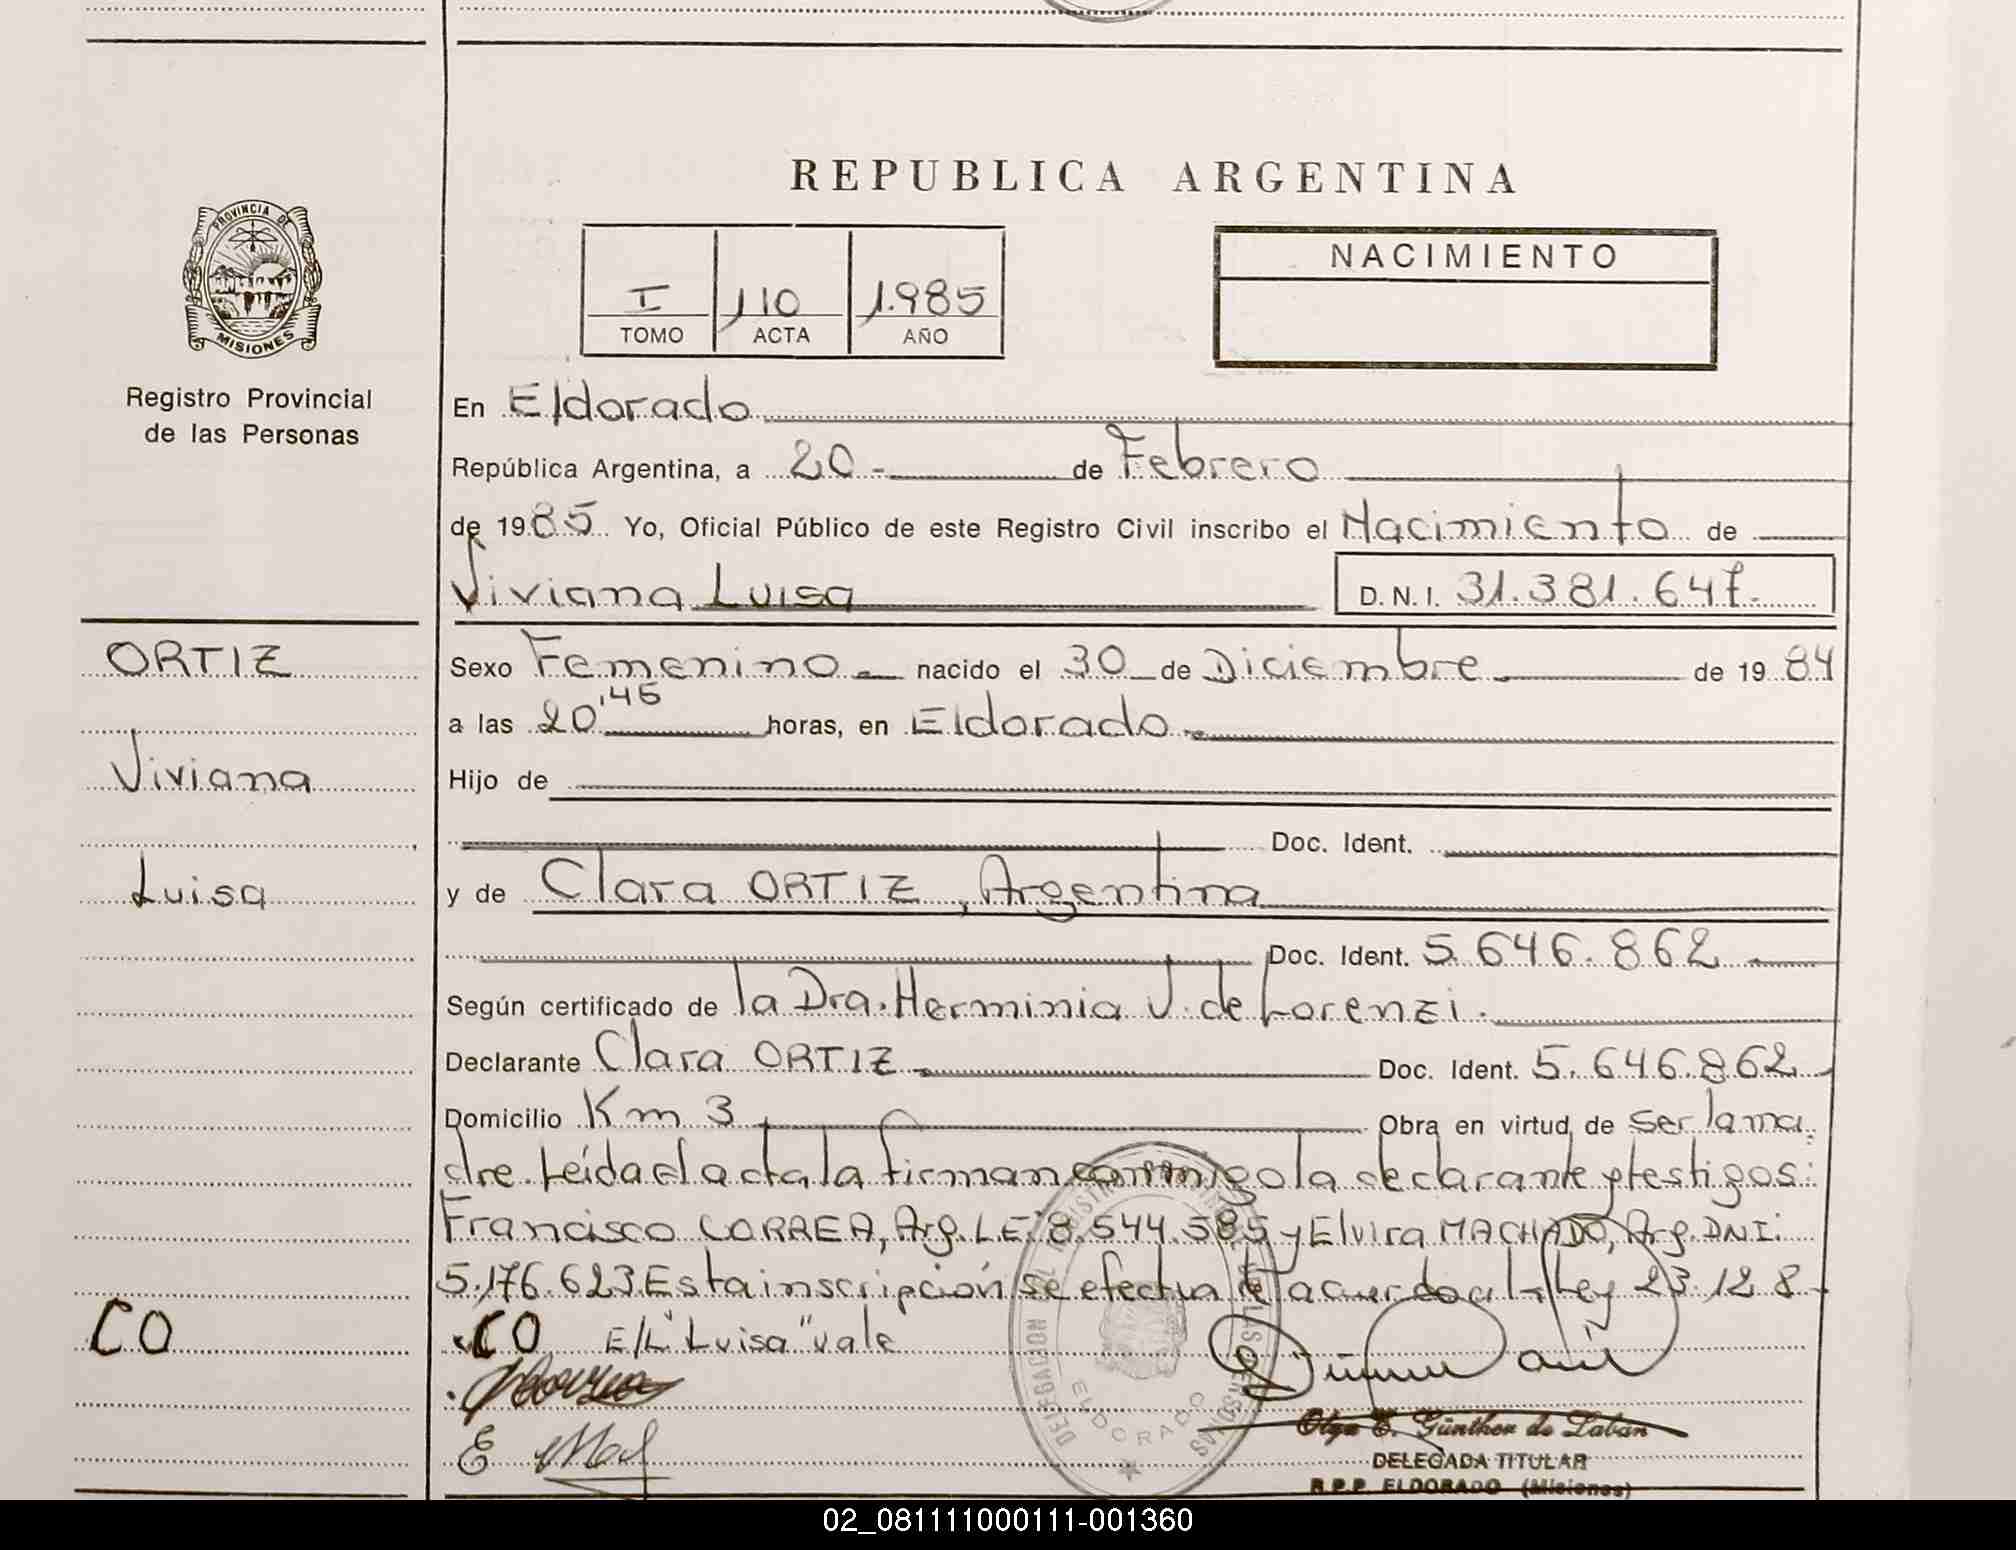 REPUBLICA ARGENTINA
PROVINCIA DE
MISIONES
Registro Provincial
de las Personas
I 110 1.985
TOMO ACTA AÑO
NACIMIENTO
En Eldorado
República Argentina, a 20 - de Febrero
de 1985 Yo, Oficial Público de este Registro Civil inscribo el Nacimiento de
Viviana Luisa D.N.I. 31.381.647.
ORTIZ
Viviana
Luisa
CO
Sexo Femenino nacido el 30 de Diciembre de 1984
a las 20,45 horas, en Eldorado
Hijo de
Doc. Ident.
y de Clara ORTIZ, Argentina
Doc. Ident. 5.646.862
Según certificado de la Dra. Herminia J. de Lorenzi.
Declarante Clara ORTIZ Doc. Ident. 5.646.862
Domicilio Km 3 Obra en virtud de ser la ma
dre. Leída el acta la firman conmigo la declarante y testigos:
Francisco CORREA, Arg. L.E. 8.544.585 y Elvira MACHADO, Arg. DNI.
5.176.623. Esta inscripción se efectua de acuerdo a la Ley 23.128-
CO E/L "Luisa" vale
DELEGACION DEL REGISTRO PROVINCIAL DE LAS PERSONAS
ELDORADO
Olga E. Günther de Labán
DELEGADA TITULAR
R.P.P. ELDORADO (Misiones)
02_081111000111-001360